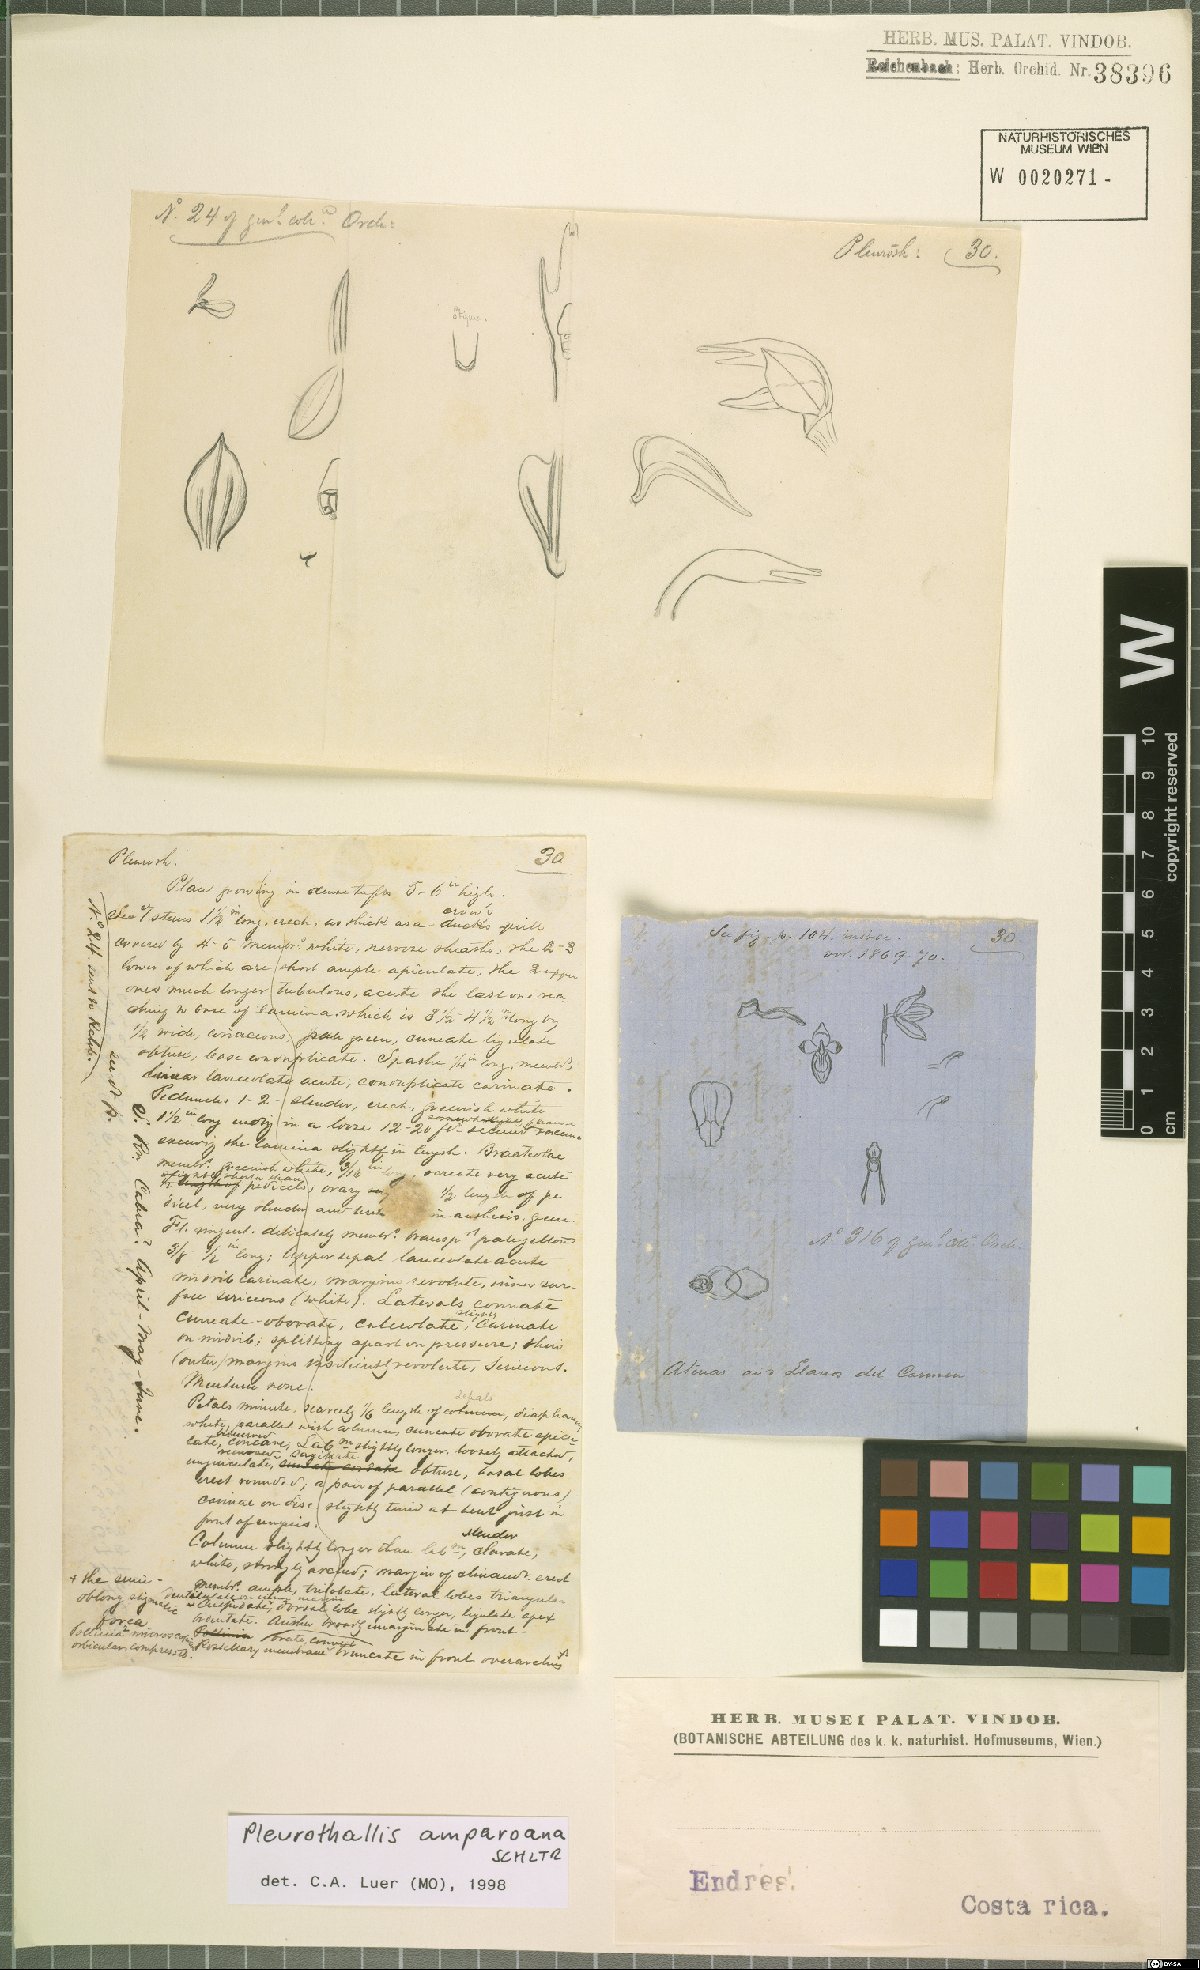 HERB. MUS. PALAT. VINDOB.
Reichenbach: Herb. Orchid. Nr. 38396
NATURHISTORISCHES
MUSEUM WIEN
W 0020271 -
No. 24 of genl. coln. Orch:
Pleuroth: 30.
stigma.
Pleuroth. 30
Plant growing in dense tufts 5-6 in high.
stems 1 1/2 in long, erect, as thick as a crow's
covered by 4-5 membrs. white, nervose sheaths, the 2-3
lower of which are short ample apiculate, the 2 upper
ones much longer tubulous, acute the last one rea
ching to base of lamina, which is 3 1/2 - 4 1/2 in long by
1/2 wide, coriaceous, pale green, cuneate ligulate
obtuse, base conduplicate. Spathe 1/4 in long, membrs.
linear lanceolate acute, conduplicate carinate.
Peduncles 1-2 - slender, erect, greenish white
1 1/2 in long ending in a loose 12-20 fl. secund raceme
exceeding the lamina slightly in length. Bracteolae
membrs. greenish white, 3/16 in long, very acute
pedicels; ovary 1/2 length of pe
dicel, very slender and in anthesis, green.
Fl. ringent. delicately membrs. transpt.
3/8 - 1/2 in long; Upper sepal lanceolate acute
midrib carinate, margins revolute, inner sur-
face sericeous (white). Laterals connate
cuneate-obovate, calceolate, carinate
on midrib; splitting apart on pressure; their
(outer) margins revolute, sericeous.
Mentum none.
sepals
Petals minute, scarcely 1/6 length of column, diaphanous
white, parallel with column, cuneate obovate apicu-
late, concave, Labm. slightly longer, loosely attached,
unguiculate, obtuse, basal lobes
erect rounded; a pair of parallel (contiguous)
carinae on disc slightly turned at bend just in
front of unguis.
slender
Column slightly longer than labm., clavate,
white, strongly arcuate; margin of clinandr. erect
membrs. ample, trilobate, lateral lobes triangular
cuspidate, dorsal lobe slightly longer, ligulate apex
truncate. Anther broadly emarginate in front
Rostellary membrane truncate in front overarching
+ the semi-
oblong stigmatic
fovea
Pollinia microscopic
orbicular, compressed.
No. 24 sensu Reichb.
April - May - June.
See fig. p. 104.
nov. 1869-70. 30
No 316 of genl. coln. Orch.
Atenas and Llanos del Carmen
W
0 1 2 3 4 5 6 7 8 9 10
cm
copyright reserved
HERB. MUSEI PALAT. VINDOB.
(BOTANISCHE ABTEILUNG des k. k. naturhist. Hofmuseums, Wien.)
Endres.
Costa rica.
Pleurothallis amparoana
SCHLTR
det. C.A. Luer (MO), 1998